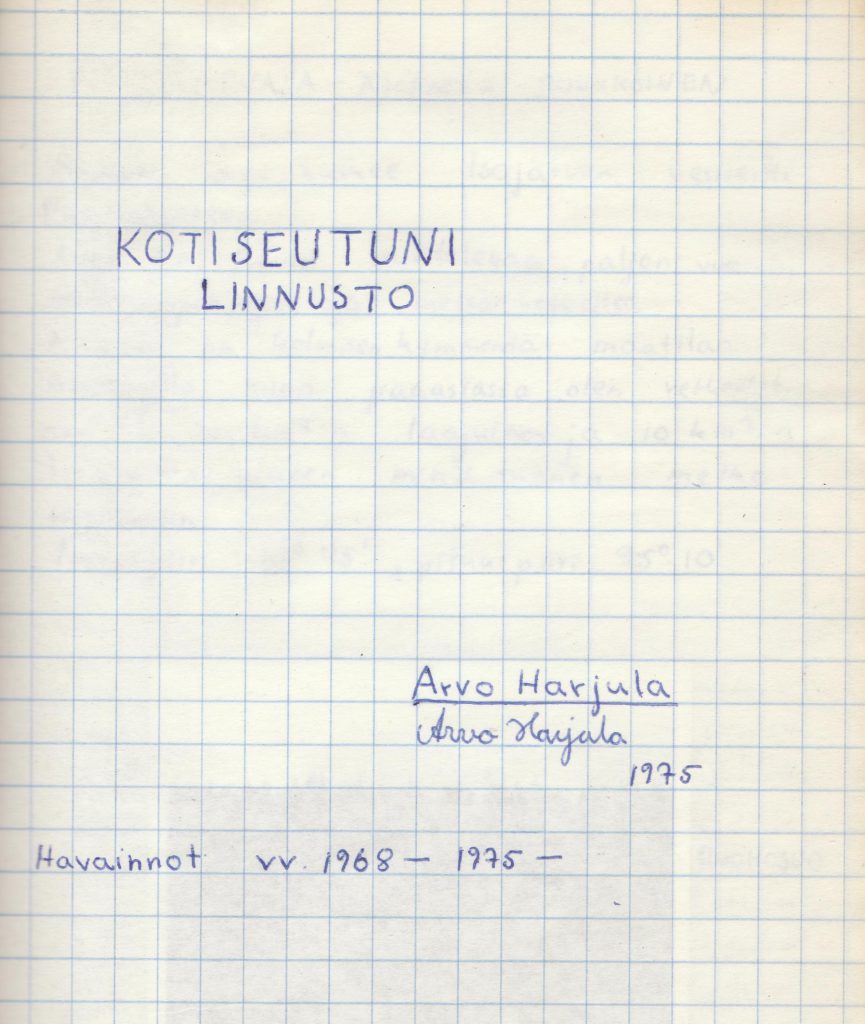 KOTISEUTUNI
LINNUSTO
Arvo Harjula
Arvo Harjula
1975
Havainnot vv. 1968 — 1975 —